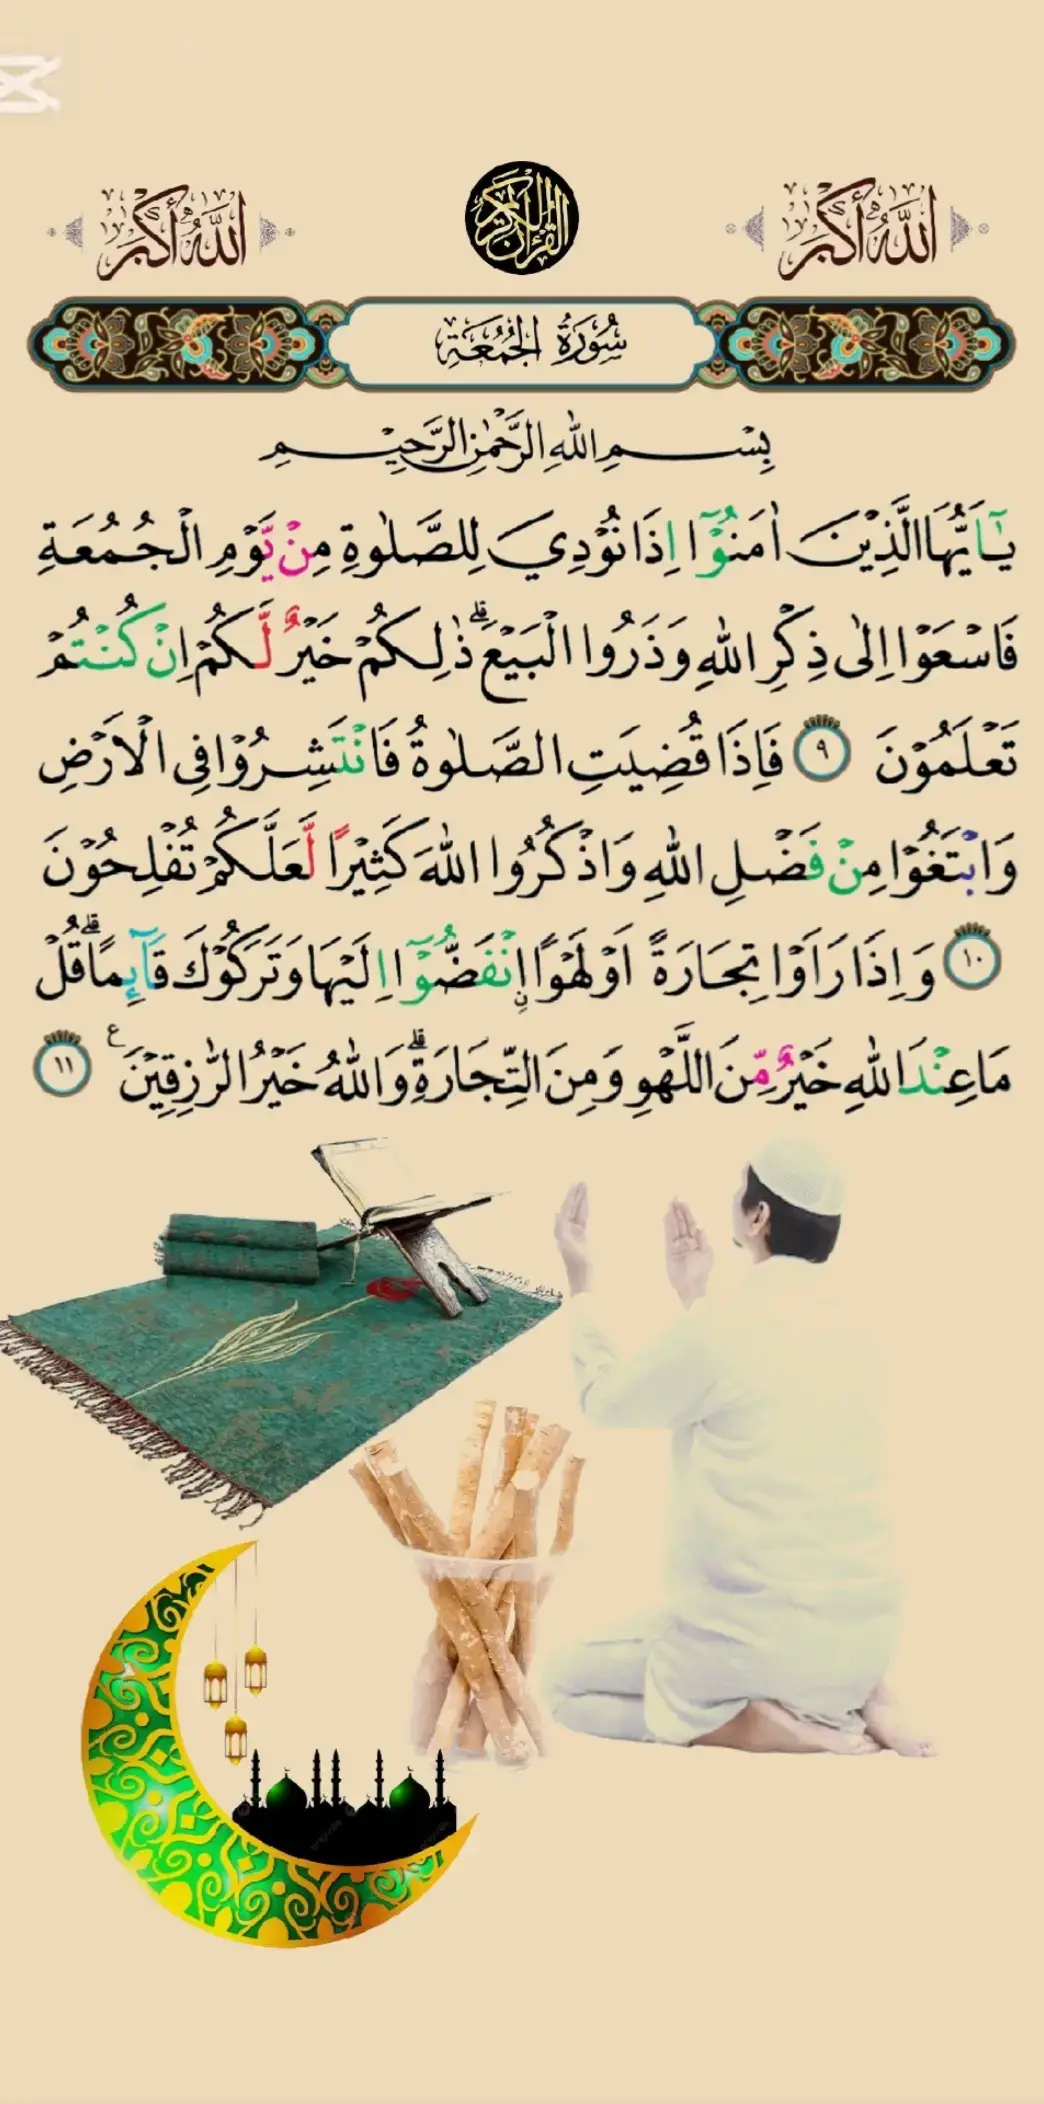 اللهُ أَكْبَر
القرآن الكريم
اللهُ أَكْبَر
سُورَةُ الْجُمُعَةِ
بِسْمِ اللهِ الرَّحْمٰنِ الرَّحِيْمِ
يٰٓاَيُّهَا الَّذِيْنَ اٰمَنُوْٓا اِذَا نُوْدِيَ لِلصَّلٰوةِ مِنْ يَّوْمِ الْجُمُعَةِ
فَاسْعَوْا اِلٰى ذِكْرِ اللهِ وَذَرُوا الْبَيْعَۗ ذٰلِكُمْ خَيْرٌ لَّكُمْ اِنْ كُنْتُمْ
تَعْلَمُوْنَ ٩ فَاِذَا قُضِيَتِ الصَّلٰوةُ فَانْتَشِرُوْا فِى الْاَرْضِ
وَابْتَغُوْا مِنْ فَضْلِ اللهِ وَاذْكُرُوا اللهَ كَثِيْرًا لَّعَلَّكُمْ تُفْلِحُوْنَ
١٠ وَاِذَا رَاَوْا تِجَارَةً اَوْ لَهْوًا ۨانْفَضُّوْٓا اِلَيْهَا وَتَرَكُوْكَ قَاۤىِٕمًاۗ قُلْ
مَا عِنْدَ اللهِ خَيْرٌ مِّنَ اللَّهْوِ وَمِنَ التِّجَارَةِۗ وَاللهُ خَيْرُ الرّٰزِقِيْنَ ࣖ ١١